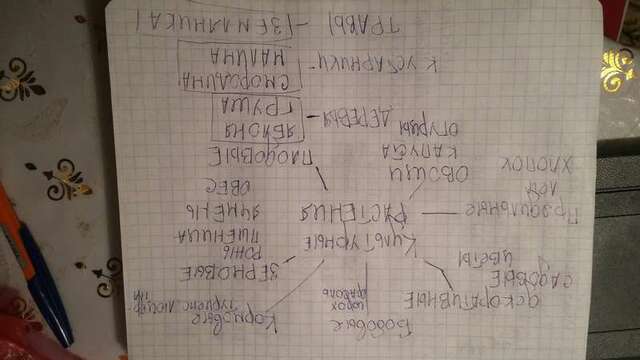 Бобовые
горох
фасоль
Кормовые
турнепс, люцерна
декоративные
садовые
цветы
Зерновые
рожь
пшеница
ячмень
овес
Культурные
растения
Прядильные
лен
хлопок
овощи
капуста
огурцы
плодовые
деревья – яблоня
груша
кустарники – смородина
малина
травы – земляника